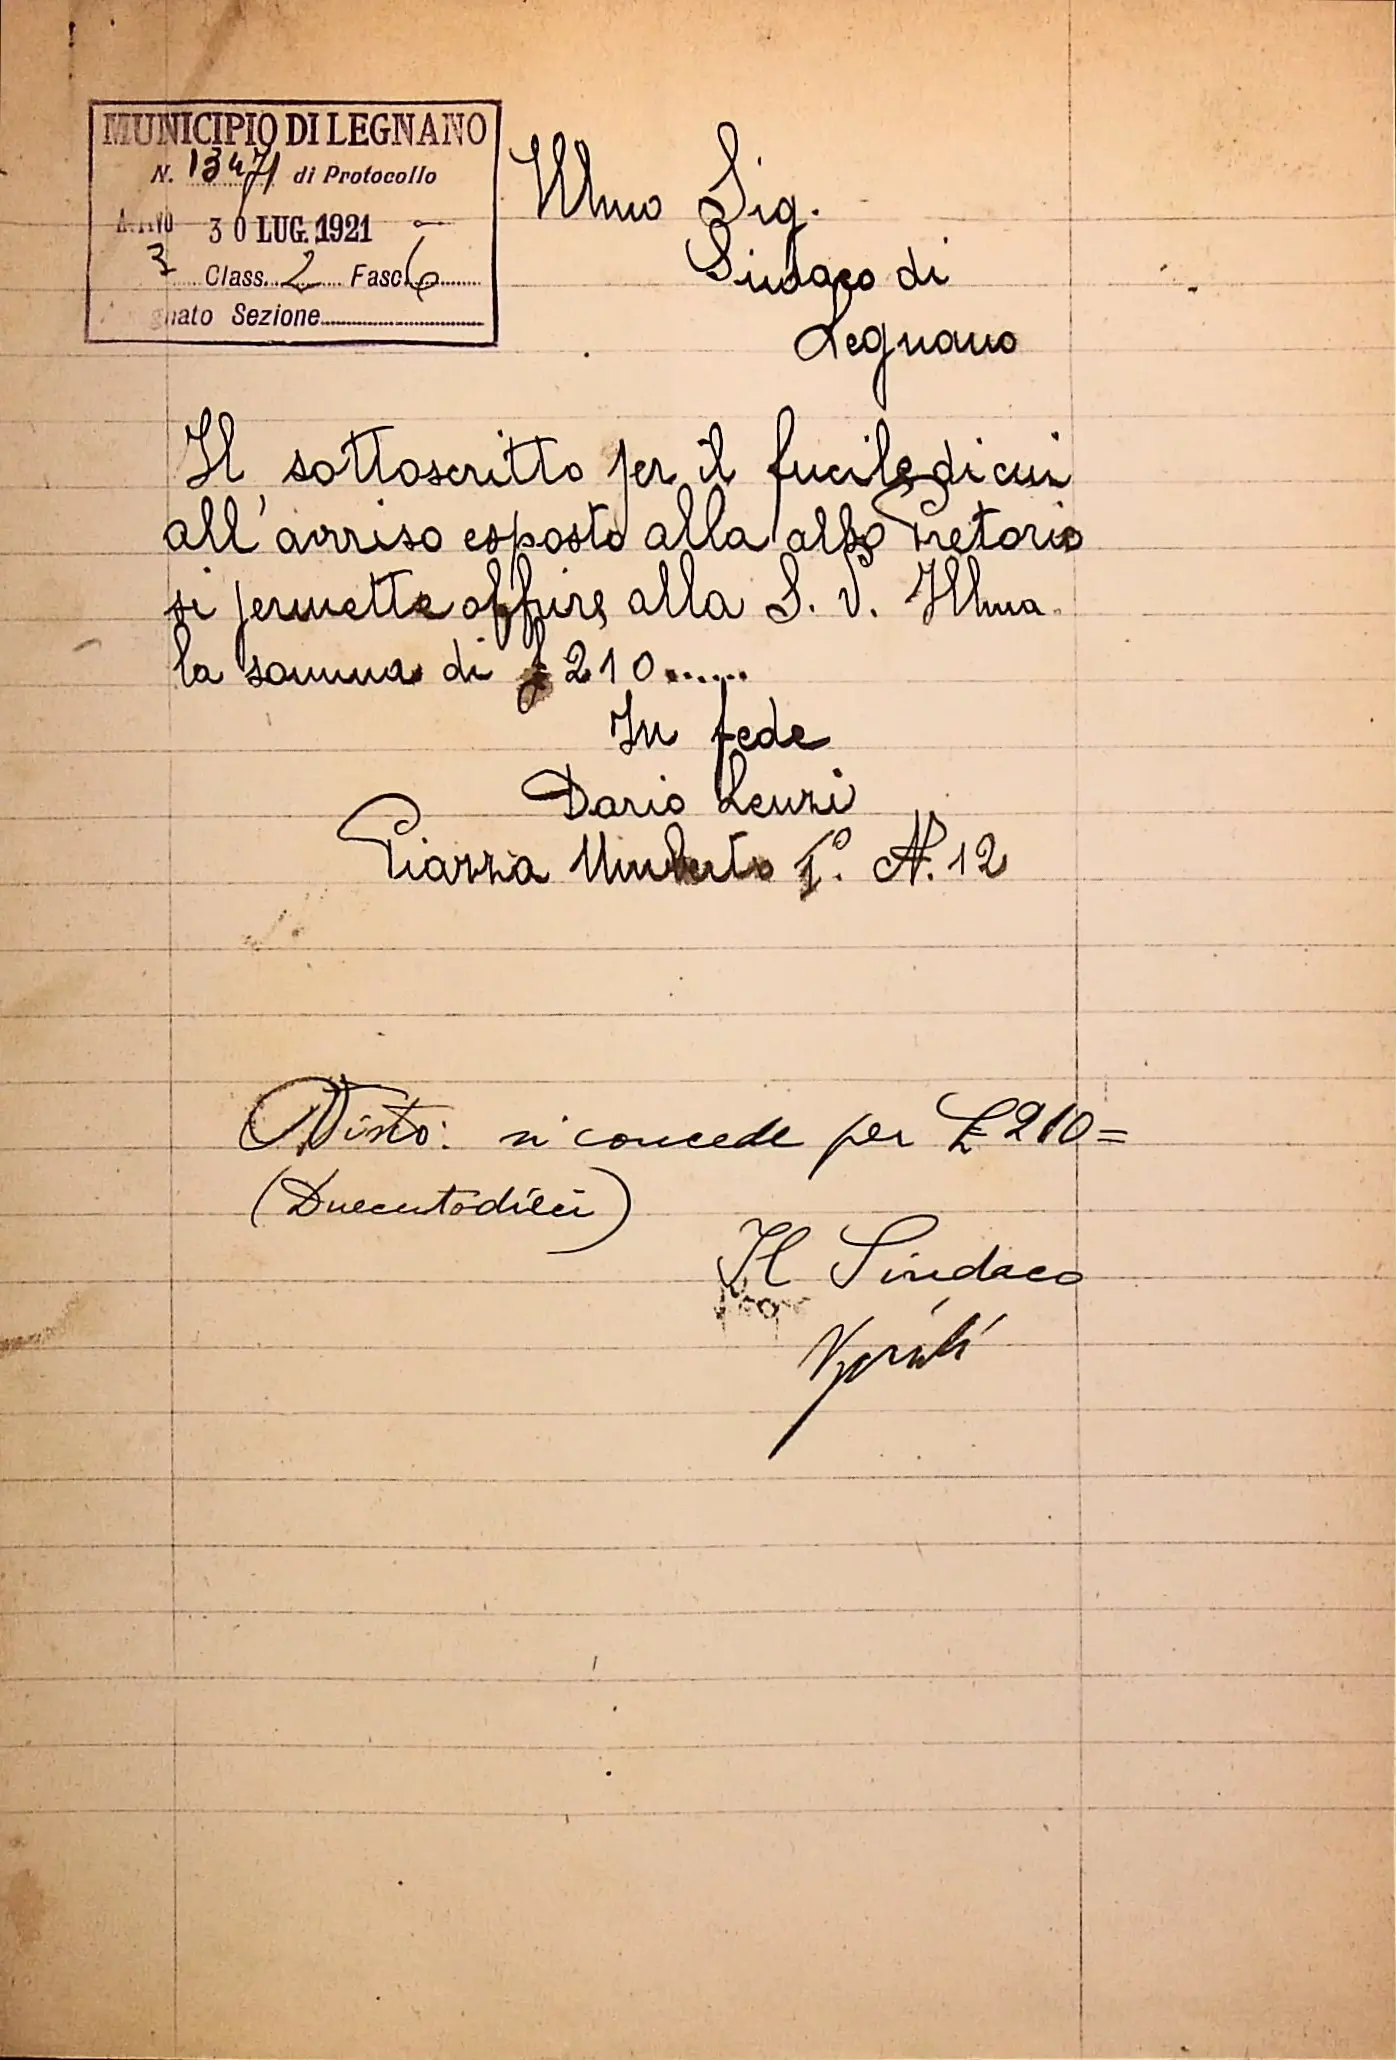 MUNICIPIO DI LEGNANO
N. 13471 di Protocollo
30 LUG. 1921
3 Class. 2 Fasc. 6
Sezione
Illmo Sig.
Sindaco di
Legnano
Il sottoscritto per il fucile di cui
all'avviso esposto alla albo Pretorio
si permette offrire alla S. V. Illma
la somma di £ 210......
In fede
Dario Lenzi
Piazza Umberto I° N. 12
Visto: si concede per £ 210=
(Duecentodieci)
Il Sindaco